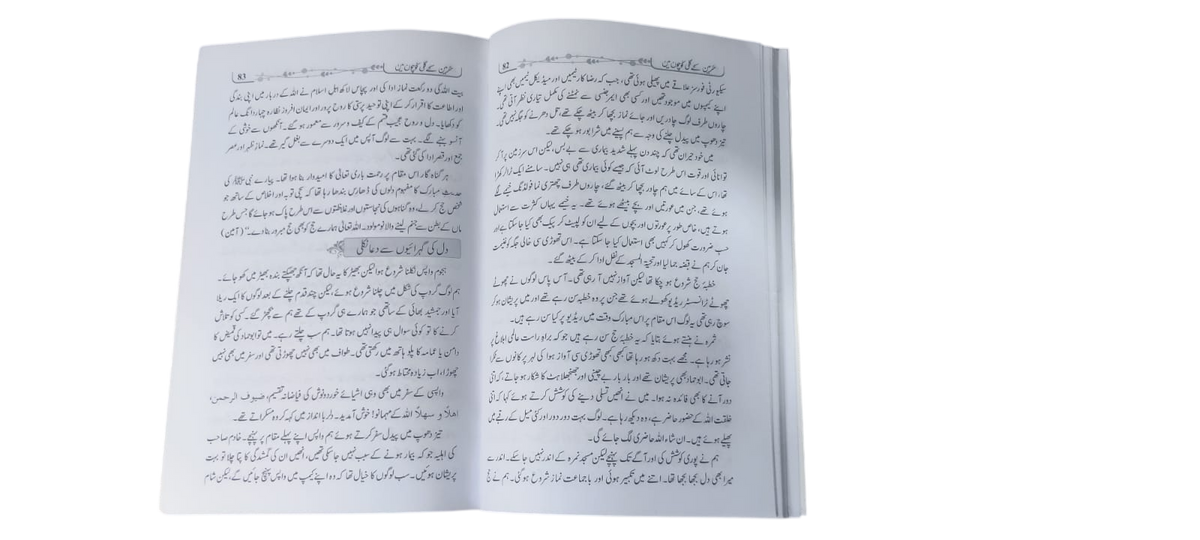 82
حرمین کے گلی کوچوں میں
سیکیورٹی فورسز علاقے میں پھیلی ہوئی تھی، جب کہ رضا کار ٹیمیں اور میڈیکل ٹیمیں بھی اپنے
اپنے کیمپوں میں موجود تھیں اور کسی بھی ایمرجنسی سے نمٹنے کی مکمل تیاری نظر آتی تھی۔
چاروں طرف لوگ چادریں اور جائے نماز بچھا کر بیٹھ چکے تھے، تل دھرنے کو جگہ نہیں تھی۔
تیز دھوپ میں پیدل چلنے کی وجہ سے ہم پسینے میں شرابور ہو چکے تھے۔
میں خود حیران تھی کہ چند دن پہلے شدید بیماری سے بے بس، لیکن اس سرزمین پر آ کر
توانائی اور قوت اس طرح لوٹ آئی کہ جیسے کوئی بیماری تھی ہی نہیں۔ سامنے ایک ٹرالر کھڑا
تھا، اس کے سائے میں ہم چادر بچھا کر بیٹھ گئے، چاروں طرف چھتری نما فولڈنگ خیمے لگے
ہوئے تھے، جن میں عورتیں اور بچے بیٹھے ہوئے تھے۔ یہ خیمے یہاں کثرت سے استعمال
ہوتے ہیں، خاص طور پر عورتوں اور بچوں کے لیے ان کو لپیٹ کر پیک بھی کیا جا سکتا ہے اور
حسب ضرورت کھول کر کہیں بھی استعمال کیا جا سکتا ہے۔ اس تھوڑی سی خالی جگہ کو غنیمت
جان کر ہم نے قبضہ جما لیا اور تحیۃ المسجد کے نفل ادا کر کے بیٹھ گئے۔
خطبۂ حج شروع ہو چکا تھا لیکن آواز نہیں آ رہی تھی۔ آس پاس لوگوں نے چھوٹے
چھوٹے ٹرانسسٹر ریڈیو کھولے ہوئے تھے جن پر وہ خطبہ سن رہے تھے اور میں پریشان ہو کر
سوچ رہی تھی یہ لوگ اس مقام پر اس مبارک وقت میں ریڈیو پر کیا سن رہے ہیں۔
ثمرہ نے ہنستے ہوئے بتایا کہ یہ خطبۂ حج سن رہے ہیں جو کہ براہِ راست عالمی ابلاغ پر
نشر ہو رہا ہے۔ مجھے بہت دکھ ہو رہا تھا کبھی کبھی تھوڑی سی آواز ہوا کی لہر پر کانوں سے ٹکرا
جاتی تھی۔ ابوحماد بھی پریشان تھے اور بار بار بے چینی اور جھنجھلاہٹ کا شکار ہو جاتے، کہ اتنی
دور آنے کا بھی فائدہ نہ ہوا۔ میں نے انھیں تسلی دینے کی کوشش کرتے ہوئے کہا کہ اتنی
خلقت اللہ کے حضور حاضر ہے، وہ دیکھ رہا ہے۔ لوگ بہت دور دور اور کئی میل کے رقبے میں
پھیلے ہوئے ہیں۔ ان شاء اللہ حاضری لگ جائے گی۔
ہم نے پوری کوشش کی اور آگے تک پہنچے لیکن مسجد نمرہ کے اندر نہیں جا سکے۔ اندر سے
میرا بھی دل بجھا بجھا تھا۔ اتنے میں تکبیر ہوئی اور باجماعت نماز شروع ہو گئی۔ ہم نے حج
83
حرمین کے گلی کوچوں میں
بیت اللہ کی دو رکعت نماز ادا کی اور پچاس لاکھ اہل اسلام نے اللہ کے دربار میں اپنی بندگی
اور اطاعت کا اقرار کر کے اپنی توحید پرستی کا روح پرور اور ایمان افروز نظارہ چہار دانگ عالم
کو دکھایا۔ دل و روح عجیب قسم کے کیف و سرور سے معمور ہو گئے۔ آنکھوں سے خوشی کے
آنسو بہنے لگے۔ بہت سے لوگ آپس میں ایک دوسرے سے بغل گیر تھے۔ نماز ظہر اور عصر
جمع اور قصر ادا کی گئی تھی۔
ہر گناہ گار اس مقام پر رحمت باری تعالیٰ کا امیدوار بنا ہوا تھا۔ پیارے نبی ﷺ کی
حدیث مبارک کا مفہوم دلوں کی ڈھارس بندھا رہا تھا کہ سچی توبہ اور اخلاص کے ساتھ جو
شخص حج کر لے، وہ گناہوں کی نجاستوں اور غلاظتوں سے اس طرح پاک ہو جائے گا جس طرح
ماں کے بطن سے جنم لینے والا نومولود۔ اللہ تعالیٰ ہمارے حج کو بھی حج مبرور بنا دے۔" (آمین)
دل کی گہرائیوں سے دعا نکلی
ہجوم واپس نکلنا شروع ہوا لیکن بھیڑ کا یہ حال تھا کہ آنکھ جھپکتے بندہ بھیڑ میں کھو جائے۔
ہم لوگ گروپ کی شکل میں چلنا شروع ہوئے، لیکن چند قدم چلنے کے بعد لوگوں کا ایک ریلا
آیا اور جمشید بھائی کے ساتھی جو ہمارے ہی گروپ کے تھے ہم سے بچھڑ گئے۔ کسی کو تلاش
کرنے کا تو کوئی سوال ہی پیدا نہیں ہوتا تھا۔ ہم سب چلتے رہے۔ میں تو ابوحماد کی قمیض کا
دامن یا عمامہ کا پلو ہاتھ میں رکھتی تھی۔ طواف میں بھی نہیں چھوڑتی تھی اور سفر میں بھی نہیں
چھوڑا، اب زیادہ محتاط ہو گئی۔
واپسی کے سفر میں بھی وہی اشیائے خورد و نوش کی فیاضانہ تقسیم، ضیوف الرحمن،
اھلاً و سھلاً اللہ کے مہمانو! خوش آمدید۔ دلربا انداز میں کہہ کر وہ مسکراتے تھے۔
تیز دھوپ میں پیدل سفر کرتے ہوئے ہم واپس اپنے پہلے مقام پر پہنچے۔ خادم صاحب
کی اہلیہ جو کہ بیمار ہونے کے سبب نہیں جا سکی تھیں، انھیں ان کی گمشدگی کا پتا چلا تو بہت
پریشان ہوئیں۔ سب لوگوں کا خیال تھا کہ وہ اپنے کیمپ میں واپس پہنچ جائیں گے، لیکن شام